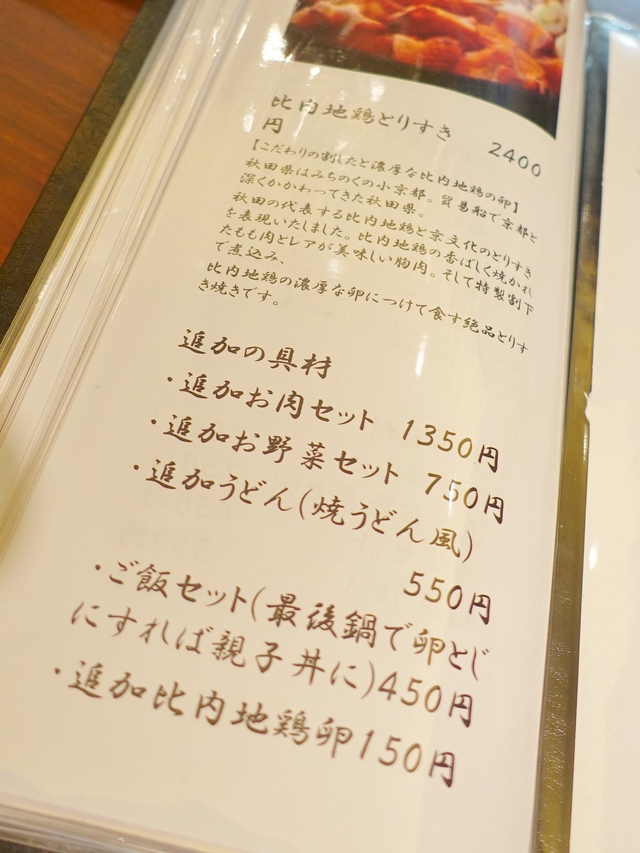 比内地鶏とりすき 2400
円
【こだわりの割したと濃厚な比内地鶏の卵】
秋田県はみちのくの小京都。貿易船で京都と
深くかかわってきた秋田県。
秋田の代表する比内地鶏と京文化のとりすき
を表現いたしました。比内地鶏の香ばしく焼かれ
たもも肉とレアが美味しい胸肉。そして特製割下
で煮込み、
比内地鶏の濃厚な卵につけて食す絶品とりす
き焼きです。
追加の具材
・追加お肉セット 1350円
・追加お野菜セット 750円
・追加うどん(焼うどん風)
550円
・ご飯セット(最後鍋で卵とじ
にすれば親子丼に)450円
・追加比内地鶏卵150円